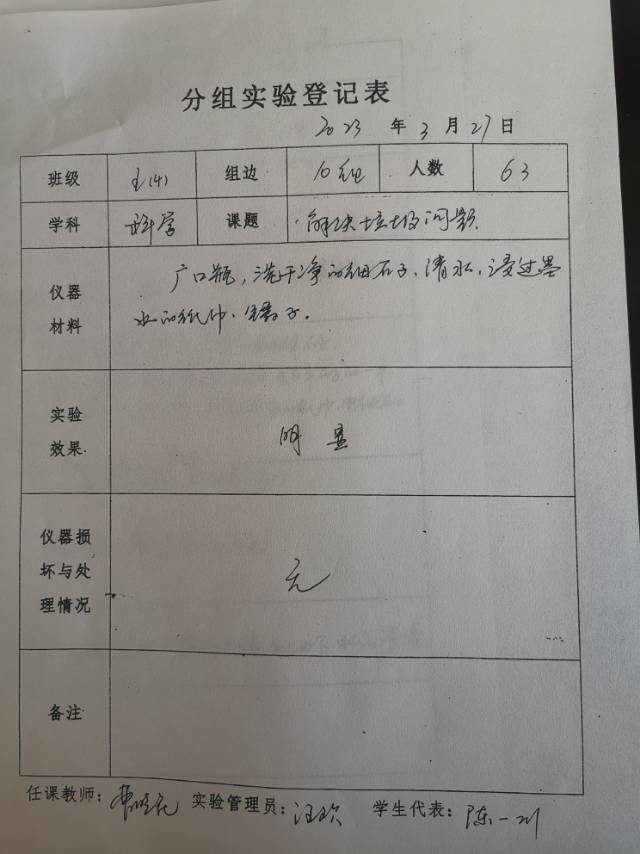 分组实验登记表
2023 年 3 月 27 日
班级 组边 10组 人数 63
学科 科学 课题 解决垃圾问题
仪器材料 广口瓶,洗干净的细石子、清水,浸过墨
水的纸巾、镊子.
实验
效果 明显
仪器损
坏与处
理情况 无
备注
任课教师: 实验管理员:汪欢 学生代表:陈一川